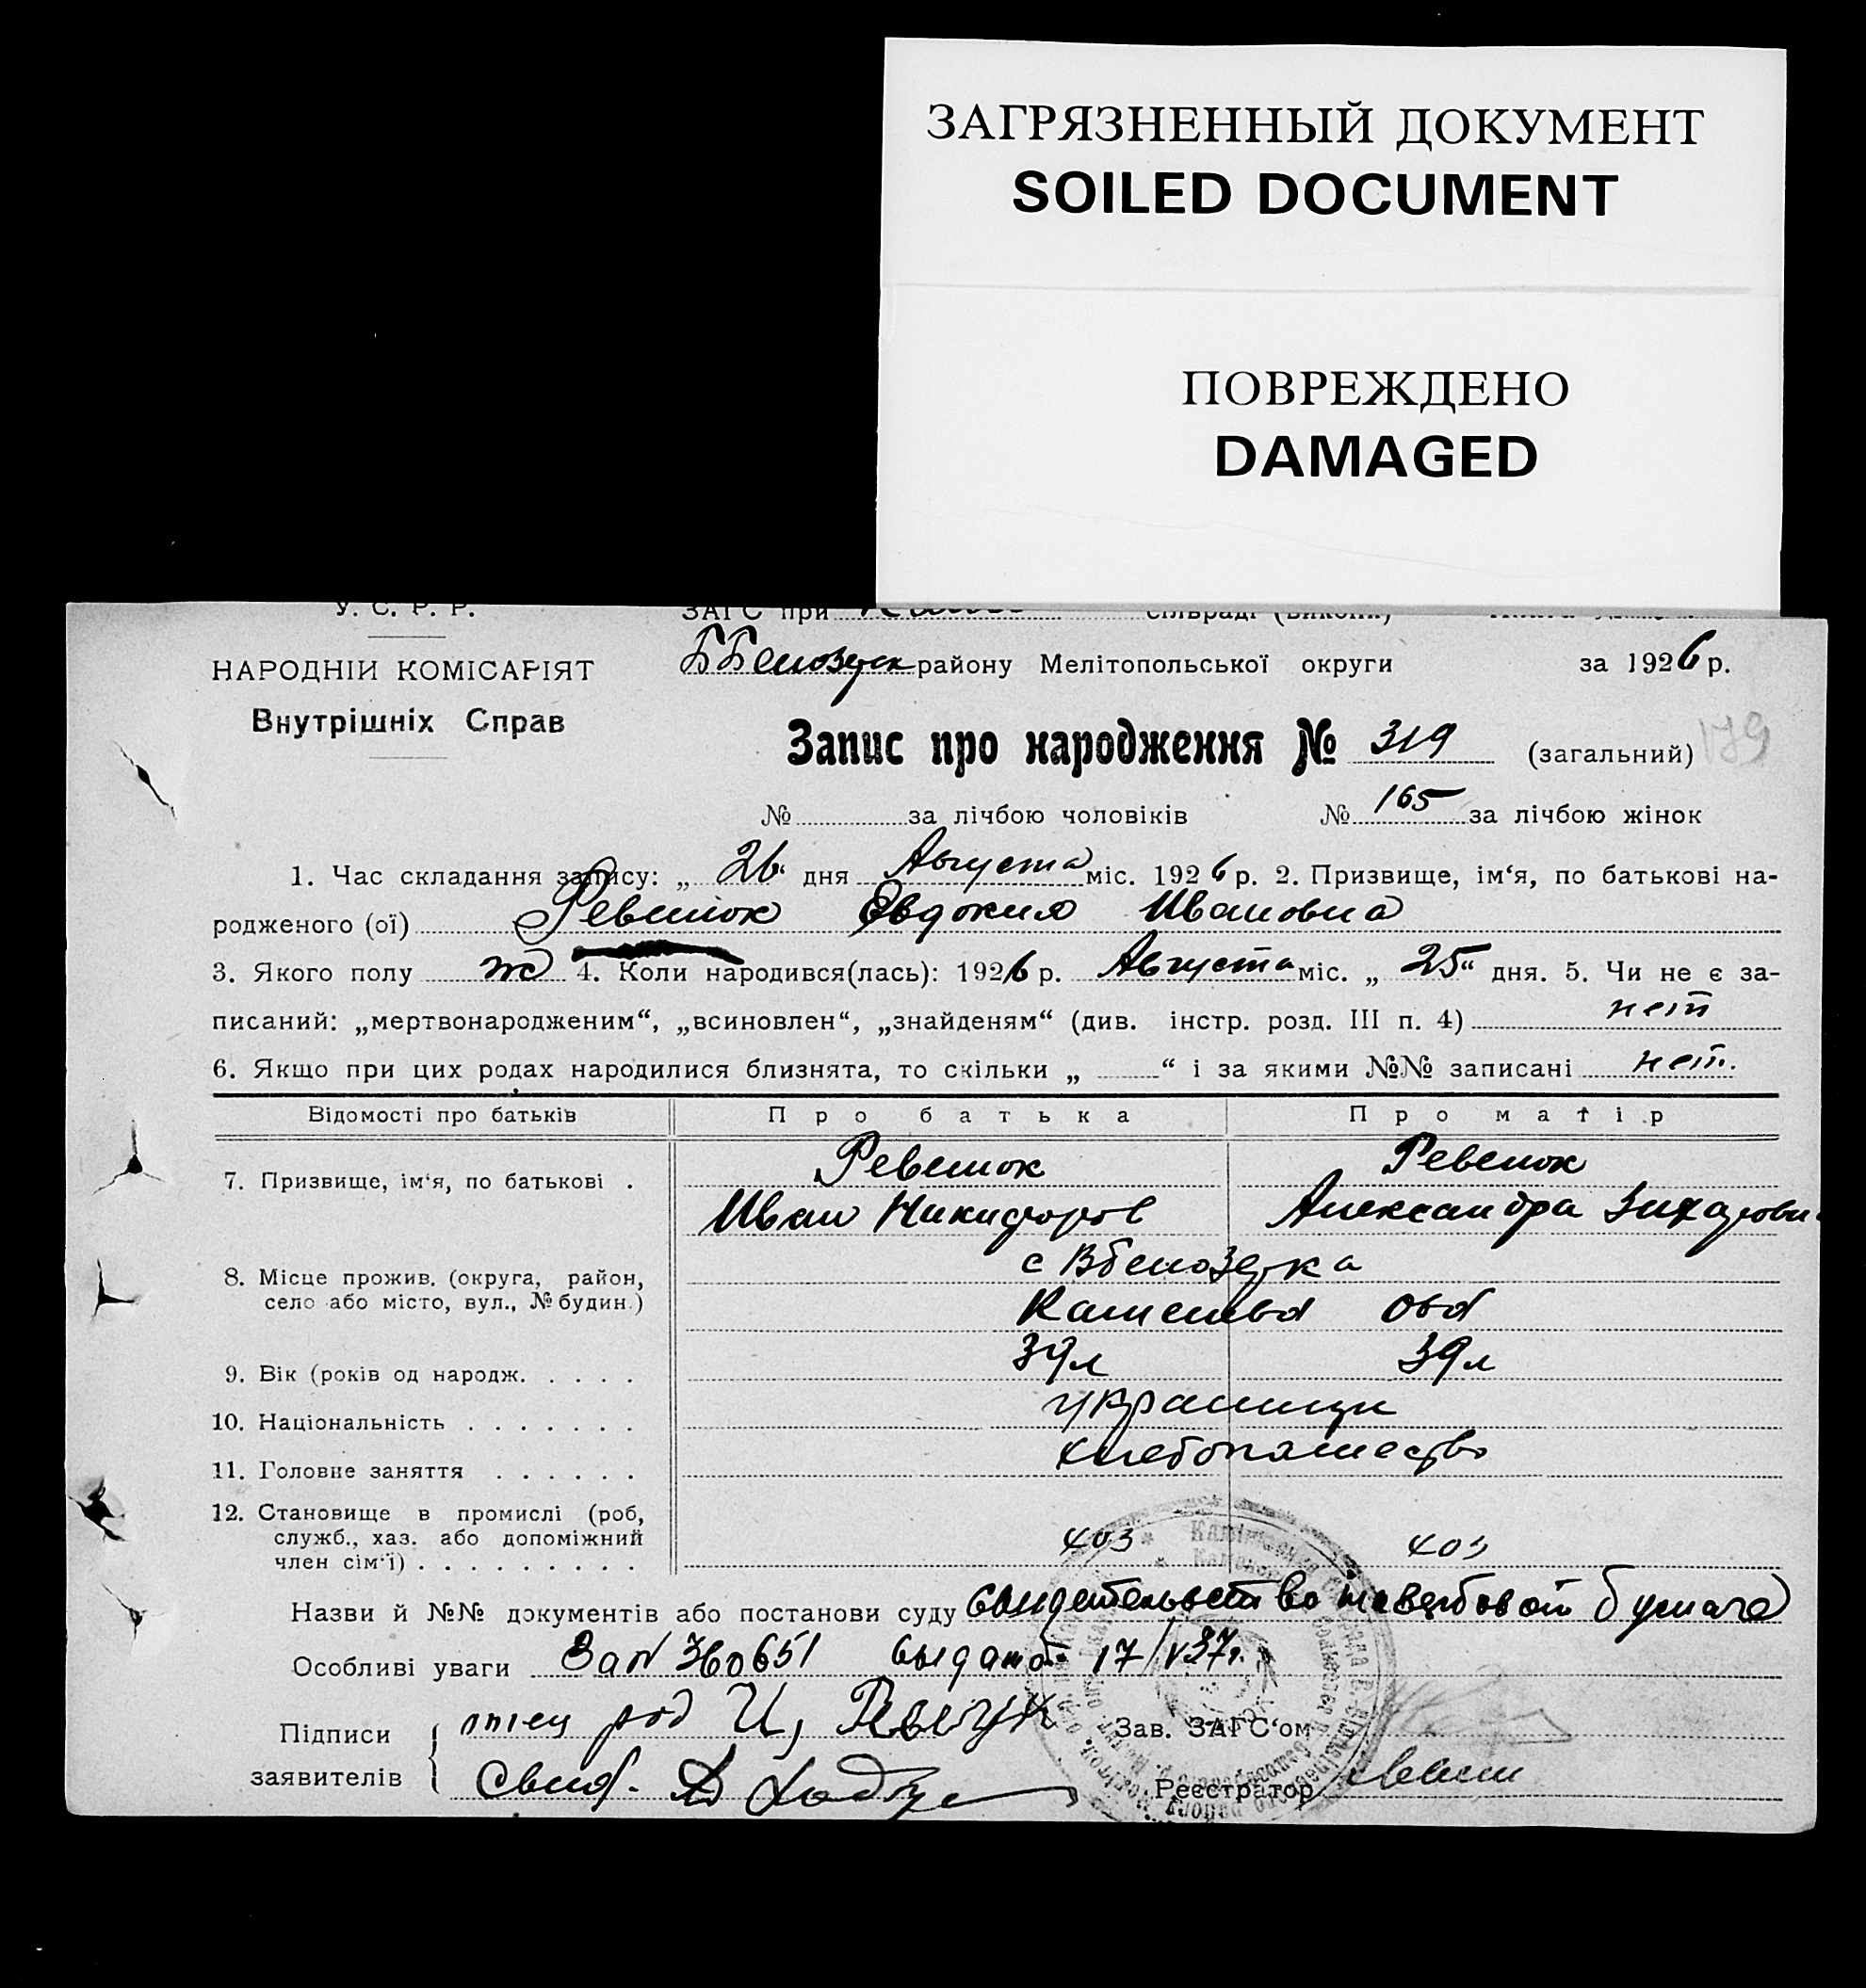 ЗАГРЯЗНЕННЫЙ ДОКУМЕНТ
SOILED DOCUMENT
ПОВРЕЖДЕНО
DAMAGED
У. С. Р. Р.
ЗАГС при сільраді (викони)
НАРОДНІЙ КОМІСАРІЯТ
Внутрішніх Справ
району Мелітопольської округи за 1926 р.
Запис про народження № 319 (загальний) 179
№ за лічбою чоловіків № 165 за лічбою жінок
1. Час складання запису: „ 26 “ дня Августа міс. 1926 р. 2. Призвище, ім‘я, по батькові на-
родженого (ої) Ревенок Евдокия Ивановна
3. Якого полу ж 4. Коли народився(лась): 1926 р. Августа міс. „ 25 “ дня. 5. Чи не є за-
писаний: „мертвонародженим“, „всиновлен“, „знайденям“ (див. інстр. розд. III п. 4) нет
6. Якщо при цих родах народилися близнята, то скільки „ “ і за якими №№ записані нет.
Відомості про батьків Про батька Про матір
7. Призвище, ім‘я, по батькові . Ревенок Ревенок
Иван Никифоров Александра
8. Місце прожив. (округа, район,
село або місто, вул., № будин.)
с
9. Вік (років од народж. . . . . 39л 39л
10. Національність . . . . . . . украинцы
11. Головне заняття . . . . . . хлебопашество
12. Становище в промислі (роб,
служб., хаз. або допоміжний
член сім‘ї) . . . . . . . . . хоз хоз
Назви й №№ документів або постанови суду свидетельство на гербовой бумаге
Особливі уваги За № 360651 выдано 17/V37г.
Підписи
заявителів
отец И, Ревенук
Зав. ЗАГС‘ом
Свид.
Реєстратор